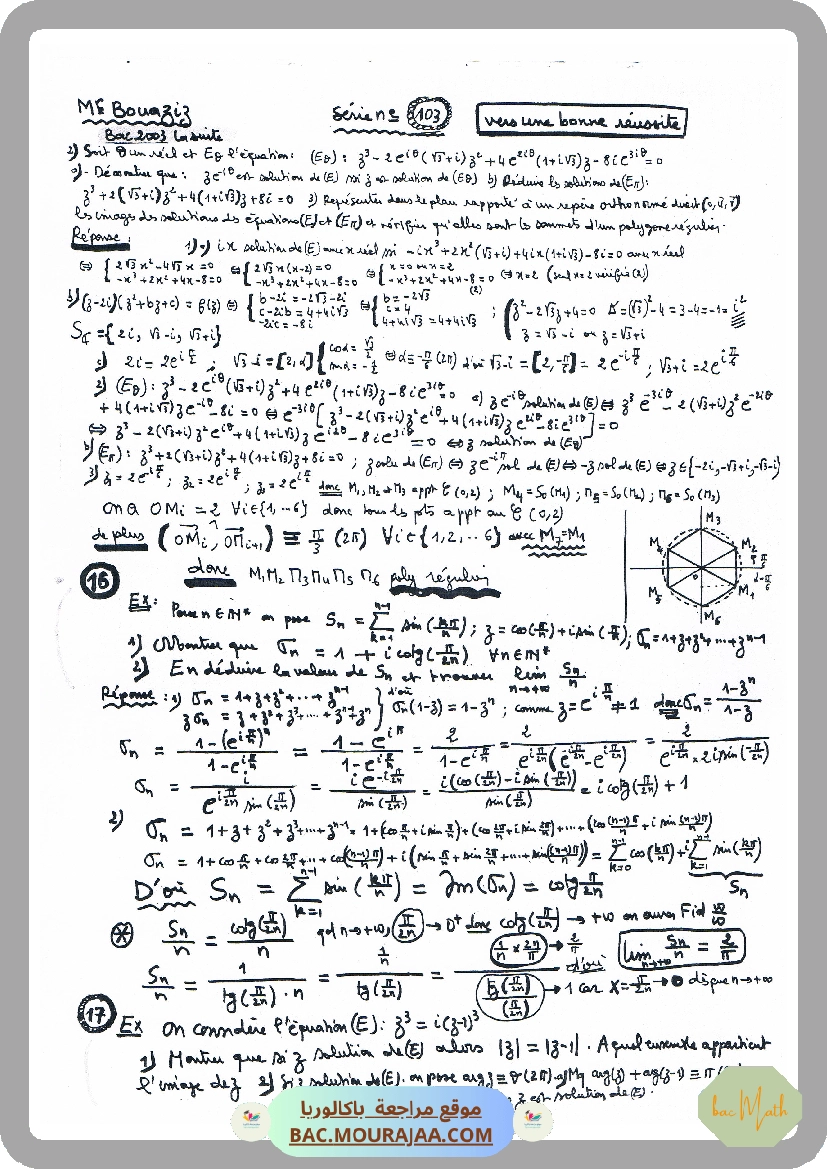 Mr Bouaziz Série n° 103 vers une bonne réussite
Bac 2003 la suite
2) Soit θ un réel et Eθ l'équation: (Eθ): z³ - 2e^{iθ}(√3+i)z² + 4e^{2iθ}(1+i√3)z - 8ie^{3iθ} = 0
a) - Démontrer que: ze^{-iθ} est solution de (E) ssi z est solution de (Eθ) b) Déduire les solutions de (Eπ):
z³ + 2(√3+i)z² + 4(1+i√3)z + 8i = 0 3) Représenter dans le plan rapporté à un repère orthonormé direct (o, u, v)
les images des solutions des équations (E) et (Eπ) et vérifier qu'elles sont les sommets d'un polygone régulier.
Réponse: 1) a) ix solution de (E) avec x réel ssi -ix³ + 2x²(√3+i) + 4ix(1+i√3) - 8i = 0 avec x réel
⇔ { 2√3x² - 4√3x = 0 ; -x³ + 2x² + 4x - 8 = 0 ⇔ { 2√3x(x-2) = 0 ; -x³ + 2x² + 4x - 8 = 0 ⇔ { x = 0 ou x = 2 ; -x³ + 2x² + 4x - 8 = 0 (2) ⇔ x = 2 (seul x = 2 vérifie (2))
b) (z-2i)(z²+bz+c) = f(z) ⇔ { b-2i = -2√3-2i ; c-2ib = 4+4i√3 ; -2ic = -8i ⇔ { b = -2√3 ; c = 4 ; 4+4i√3 = 4+4i√3 ; { z² - 2√3z + 4 = 0 Δ' = (√3)² - 4 = 3-4 = -1 = i² ; z = √3-i ou z = √3+i
S_ℂ = {2i, √3-i, √3+i}
c) 2i = 2e^{iπ/2} ; √3-i = [2, α] { cos α = √3/2 ; sin α = -1/2 ⇔ α ≡ -π/6 (2π) d'où √3-i = [2, -π/6] = 2e^{-iπ/6} ; √3+i = 2e^{iπ/6}
2) (Eθ): z³ - 2e^{iθ}(√3+i)z² + 4e^{2iθ}(1+i√3)z - 8ie^{3iθ} = 0 a) ze^{-iθ} solution de (E) ⇔ z³e^{-3iθ} - 2(√3+i)z²e^{-2iθ}
+ 4(1+i√3)ze^{-iθ} - 8i = 0 ⇔ e^{-3iθ}[z³ - 2(√3+i)z²e^{iθ} + 4(1+i√3)ze^{2iθ} - 8ie^{3iθ}] = 0
⇔ z³ - 2(√3+i)z²e^{iθ} + 4(1+i√3)ze^{i2θ} - 8ie^{3iθ} = 0 ⇔ z solution de (Eθ)
b) (Eπ): z³ + 2(√3+i)z² + 4(1+i√3)z + 8i = 0 ; z solu de (Eπ) ⇔ ze^{-iπ} sol de (E) ⇔ -z sol de (E) ⇔ z ∈ {-2i, -√3+i, -√3-i}
3) z₁ = 2e^{-iπ/6} ; z₂ = 2e^{iπ/6} ; z₃ = 2e^{iπ/2} donc M₁, M₂ et M₃ appt C(0,2) ; M₄ = S₀(M₁) ; M₅ = S₀(M₂) ; M₆ = S₀(M₃)
on a OMi = 2 ∀i∈{1,…6} donc tous les pts appt au C(0,2)
de plus (OMi, OMi+1) ≡ π/3 (2π) ∀i∈{1,2,…6} avec M₇ = M₁
donc M₁M₂M₃M₄M₅M₆ poly régulier
M₃
M₄ M₂
o
M₅ M₁
M₆
16 Ex: Pour n∈ℕ* on pose Sn = Σ_{k=1}^{n-1} sin(kπ/n) ; z = cos(π/n) + i sin(π/n) ; σn = 1+z+z²+…+z^{n-1}
1) Montrer que σn = 1 + i cotg(π/2n) ∀n∈ℕ*
2) En déduire la valeur de Sn et trouver lim_{n→+∞} Sn/n
Réponse: 1) σn = 1+z+z²+…+z^{n-1}
zσn = z+z²+z³+…+z^{n-1}+z^n } d'où σn(1-z) = 1-z^n ; comme z = e^{iπ/n} ≠ 1 donc σn = (1-z^n)/(1-z)
σn = (1-(e^{iπ/n})^n)/(1-e^{iπ/n}) = (1-e^{iπ})/(1-e^{iπ/n}) = 2/(1-e^{iπ/n}) = 2/(e^{iπ/2n}(e^{-iπ/2n}-e^{iπ/2n})) = 2/(e^{iπ/2n} × 2i sin(-π/2n))
σn = i/(e^{iπ/2n} sin(π/2n)) = ie^{-iπ/2n}/sin(π/2n) = i(cos(π/2n) - i sin(π/2n))/sin(π/2n) = i cotg(π/2n) + 1
2) σn = 1+z+z²+z³+…+z^{n-1} = 1+(cos π/n + i sin π/n)+(cos 2π/n + i sin 2π/n)+…+(cos (n-1)π/n + i sin (n-1)π/n)
σn = 1+cos π/n + cos 2π/n + … + cos((n-1)π/n) + i(sin π/n + sin 2π/n + … + sin((n-1)π/n)) = Σ_{k=0}^{n-1} cos(kπ/n) + i Σ_{k=1}^{n-1} sin(kπ/n)
Sn
D'où Sn = Σ_{k=1}^{n-1} sin(kπ/n) = Im(σn) = cotg π/2n
* Sn/n = cotg(π/2n)/n qd n→+∞, π/2n → 0⁺ donc cotg(π/2n) → +∞ on aura F id ∞/∞
Sn/n = 1/(tg(π/2n)·n) = (1/n)/tg(π/2n) = (1/n × 2n/π)/(tg(π/2n)/(π/2n)) → 2/π d'où → 1 car X = π/2n → 0 dès que n→+∞ lim_{n→+∞} Sn/n = 2/π
17 Ex On considère l'équation (E): z³ = i(z-1)³
1) Montrer que si z solution de (E) alors |z| = |z-1|. A quel ensemble appartient
l'image de z 2) Si z solution de (E). on pose arg z ≡ θ (2π). a) Mq arg(z) + arg(z-1) ≡ π
z est solution de (E).
موقع مراجعة باكالوريا
BAC.MOURAJAA.COM
bac Math